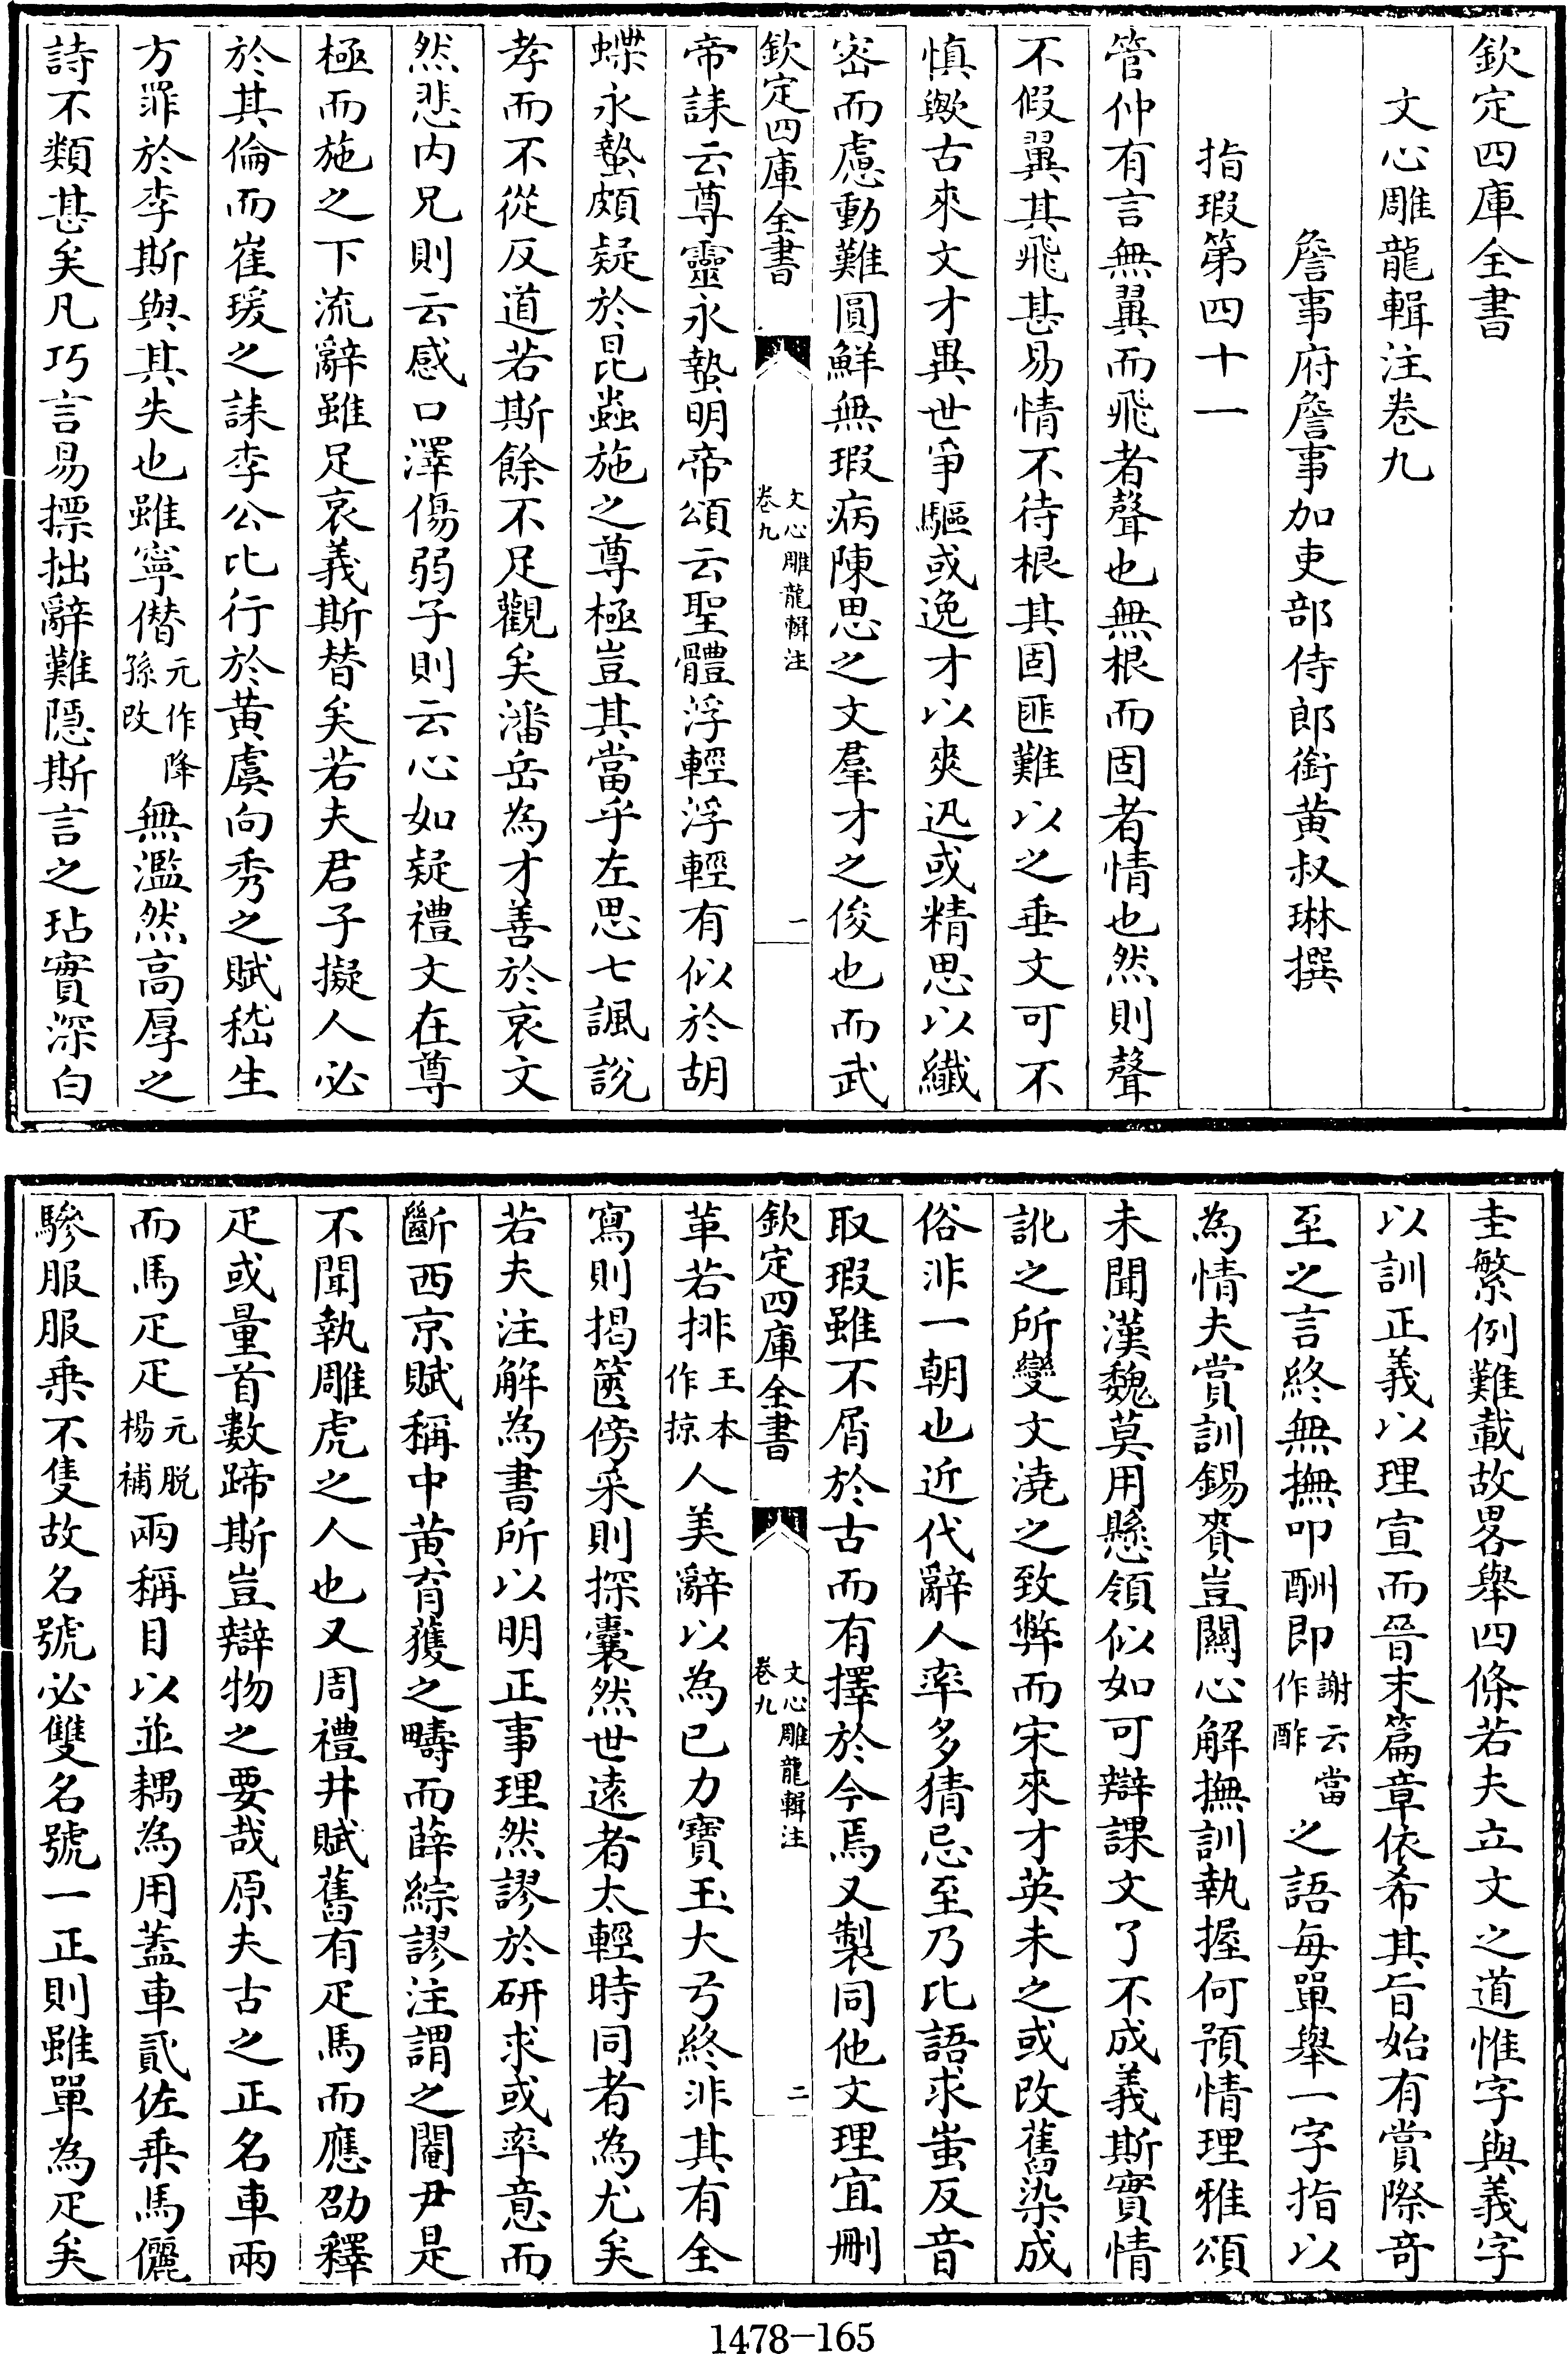 欽定四庫全書
文心雕龍輯注卷九
詹事府詹事加吏部侍郎銜黄叔琳撰
指瑕第四十一
管仲有言無翼而飛者聲也無根而固者情也然則聲
不假翼其飛甚易情不待根其固匪難以之垂文可不
慎歟古來文才異世爭驅或逸才以爽迅或精思以纖
密而慮動難圓鮮無瑕病陳思之文羣才之俊也而武
欽定四庫全書
文心雕龍輯注
卷九
一
帝誄云尊靈永蟄明帝頌云聖體浮輕浮輕有似於胡
蝶永蟄頗疑於昆蟲施之尊極豈其當乎左思七諷説
孝而不從反道若斯餘不足觀矣潘岳為才善於哀文
然悲内兄則云感口澤傷弱子則云心如疑禮文在尊
極而施之下流辭雖足哀義斯替矣若夫君子擬人必
於其倫而崔瑗之誄李公比行於黄虞向秀之賦嵇生
方罪於李斯與其失也雖寧僭元作降孫改無濫然高厚之
詩不類甚矣凡巧言易摽拙辭難隱斯言之玷實深白
圭繁例難載故畧舉四條若夫立文之道惟字與義字
以訓正義以理宣而晉末篇章依希其旨始有賞際奇
至之言終無撫叩酬即謝云當作酢之語每單舉一字指以
為情夫賞訓錫賚豈關心解撫訓執握何預情理雅頌
未聞漢魏莫用懸領似如可辯課文了不成義斯實情
訛之所變文澆之致弊而宋來才英未之或改舊染成
俗非一朝也近代辭人率多猜忌至乃比語求蚩反音
取瑕雖不屑於古而有擇於今焉又製同他文理宜刪
欽定四庫全書
文心雕龍輯注
卷九
二
革若排王本作掠人美辭以為已力寶玉大弓終非其有全
寫則揭篋傍采則探囊然世遠者太輕時同者為尤矣
若夫注解為書所以明正事理然謬於研求或率意而
斷西京賦稱中黄育獲之疇而薛綜謬注謂之閹尹是
不聞執雕虎之人也又周禮井賦舊有疋馬而應劭釋
疋或量首數蹄斯豈辯物之要哉原夫古之正名車兩
而馬疋疋元脱楊補兩稱目以並耦為用蓋車貳佐乗馬儷
驂服服乗不隻故名號必雙名號一正則雖單為疋矣
1478—165